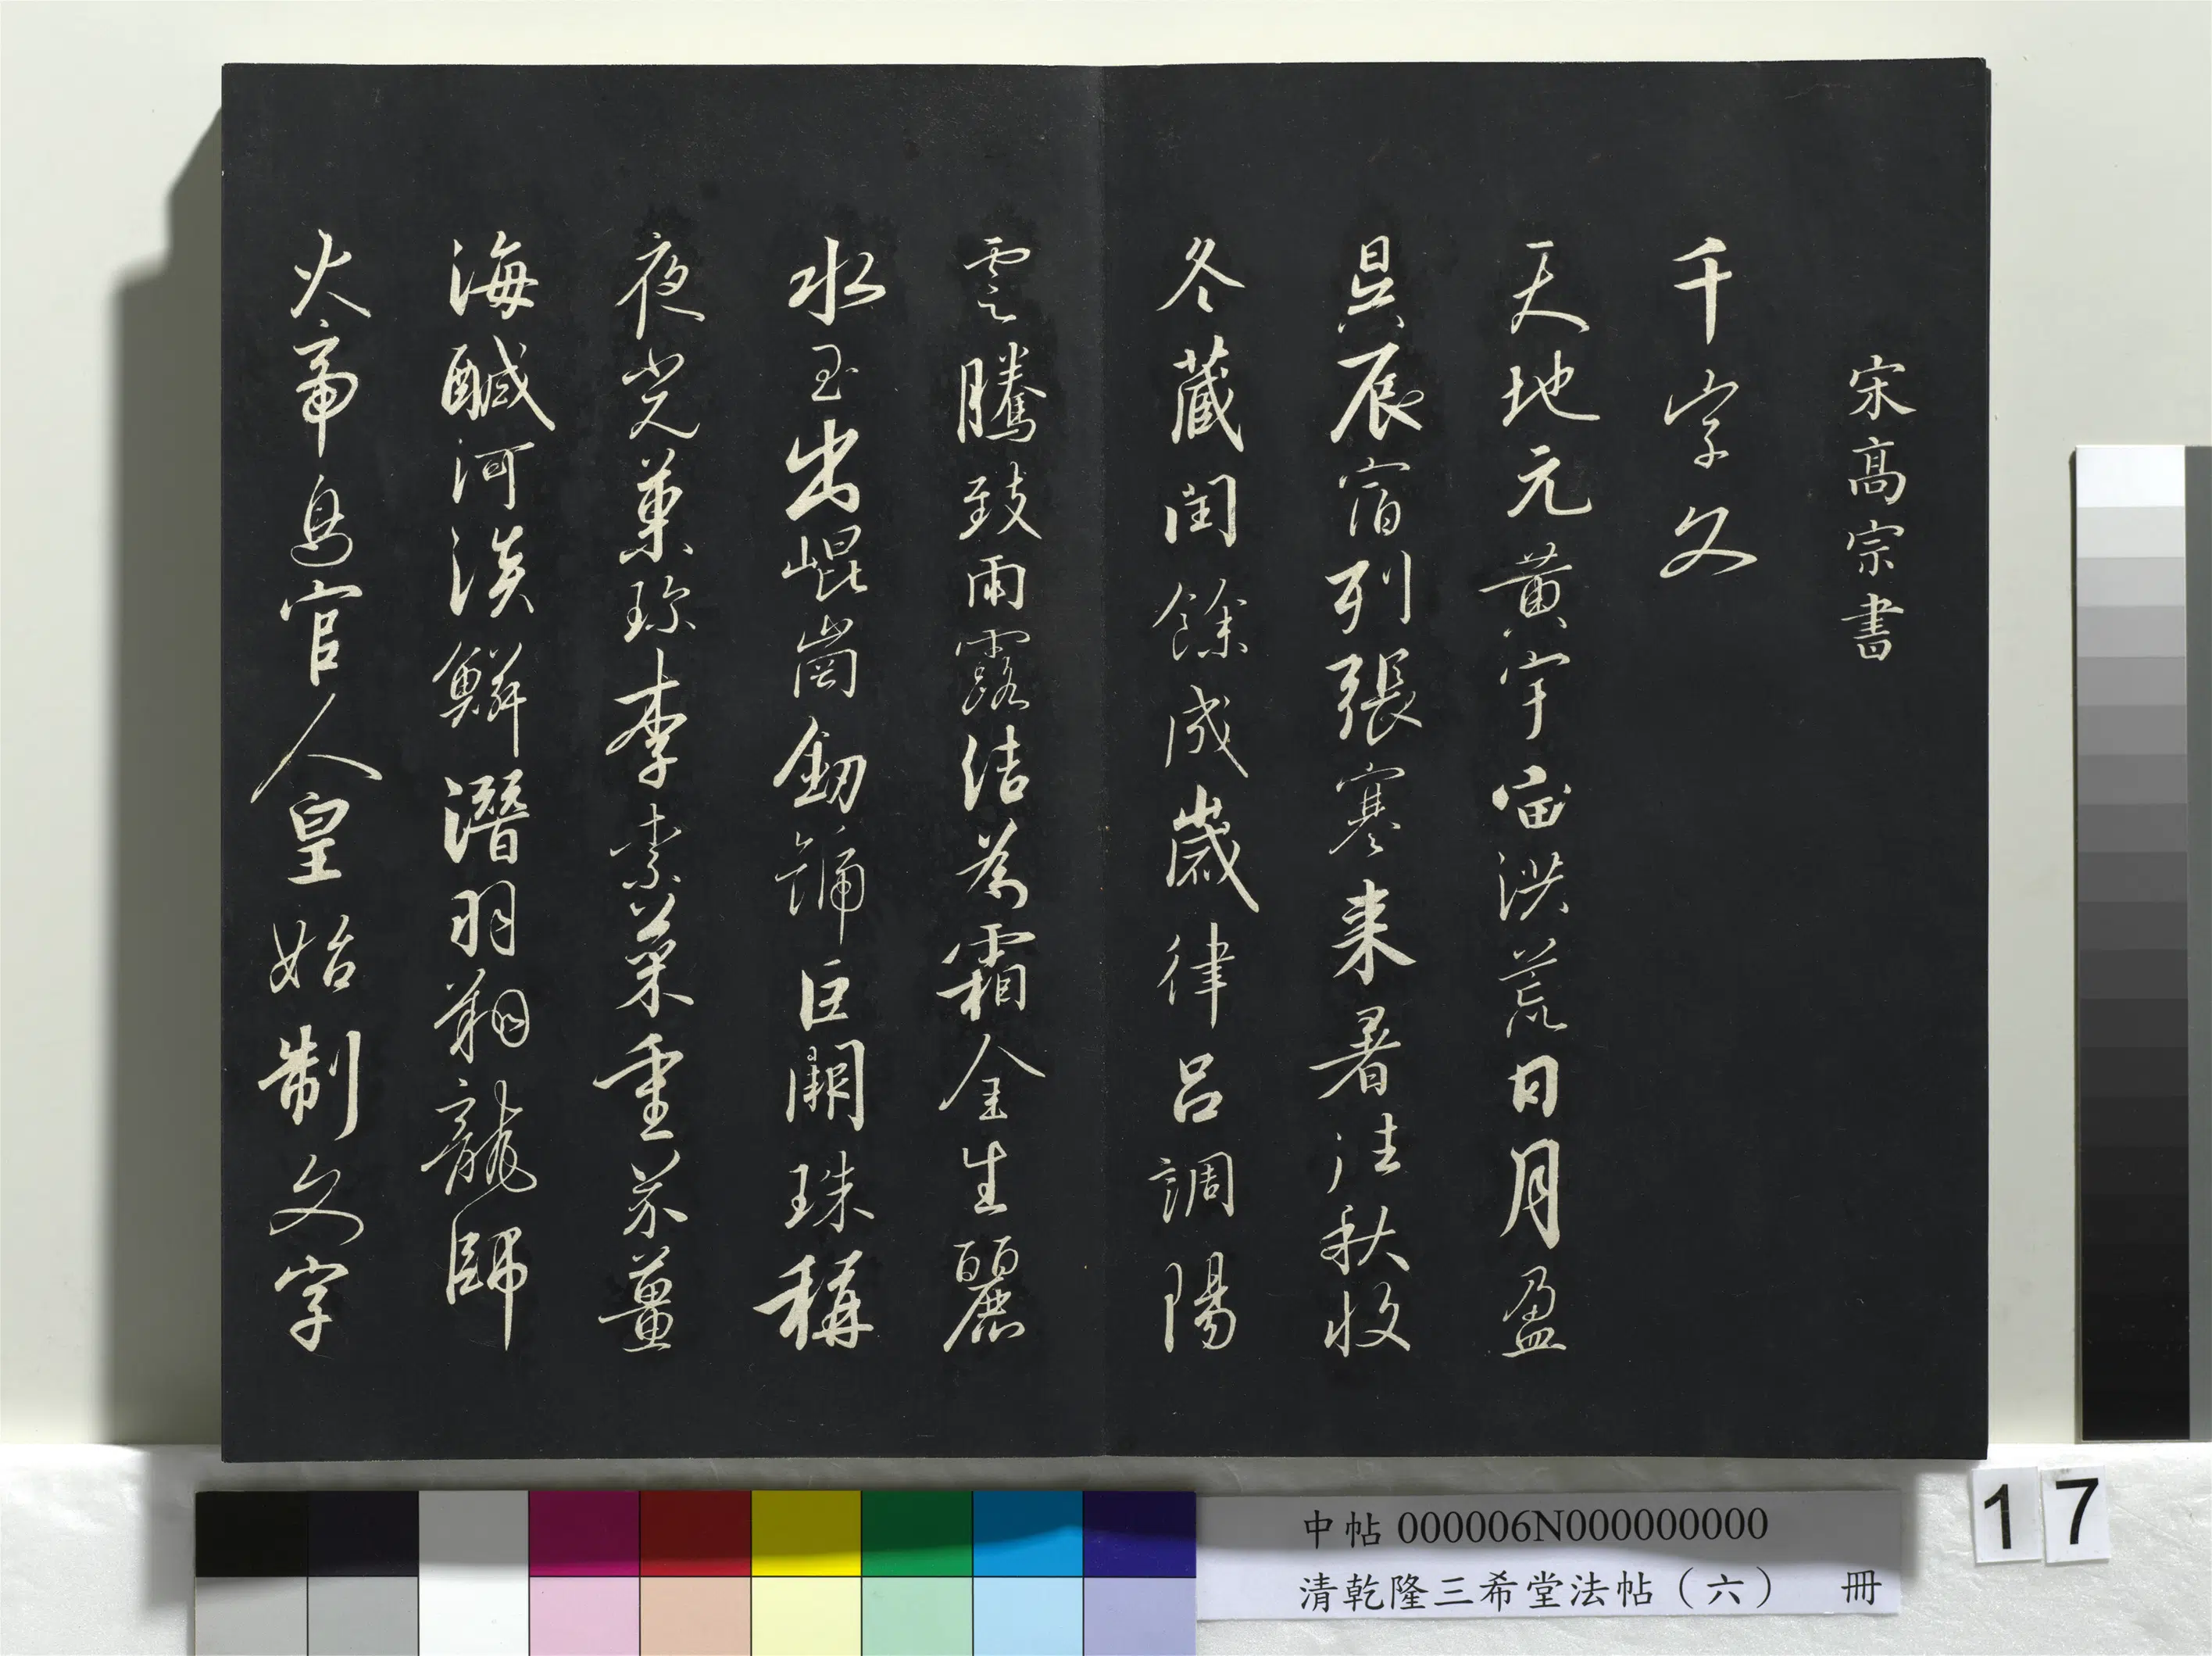 宋高宗書
千字文
天地元黄宇宙洪荒日月盈
昃辰宿列張寒来暑往秋收
冬蔵閏餘成歲律呂調陽
雲騰致雨露結為霜金生麗
水玉出崐崗劒號巨闕珠稱
夜光菓珎李柰菜重芥薑
海醎河淡鱗潛羽翔龍師
火帝鳥官人皇始制文字
中帖 000006N000000000
清乾隆三希堂法帖（六） 冊
17